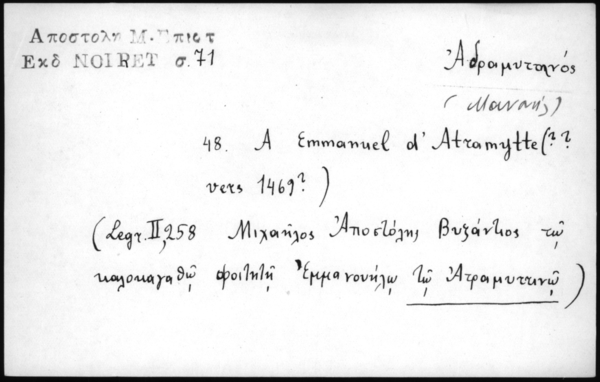 Αποστολη Μ. Επιστ
Εκδ NOIRET σ. 71
Ἀδραμυττηνός
(Μανουήλ)
48. A Emmanuel d' Atramytte (??
vers 1469?)
(Legr. II, 258 Μιχαῆλος Ἀποστόλης Βυζάντιος τῷ
καλοκαγαθῷ φοιτητῇ Ἐμμανουήλῳ τῷ Ἀτραμυττινῷ)